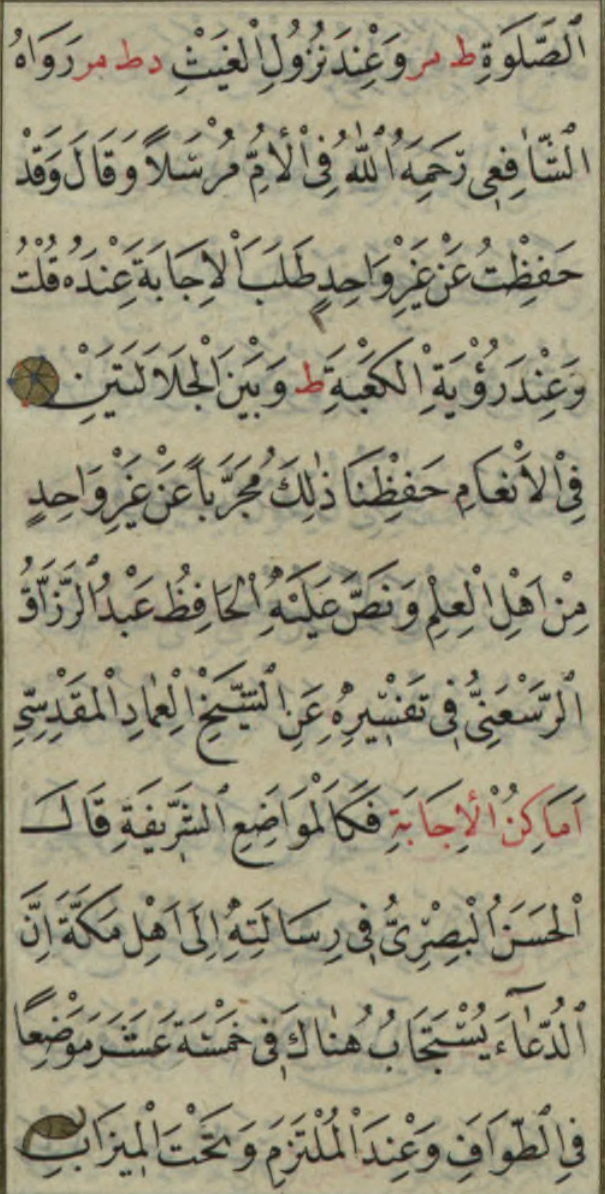 اَلصَّلٰوةِ ط مر وَعِنْدَ نُزُولِ الْغَيْثِ د ط مر رَوَاهُ
الشَّافِعِي رَحِمَهُ اللّٰهُ فِي الْأُمِّ مُرْسَلًا وَقَالَ وَقَدْ
حَفِظْتُ عَنْ غَيْرِ وَاحِدٍ طَلَبَ الْاِجَابَةِ عِنْدَهُ قُلْتُ
وَعِنْدَ رُؤْيَةِ الْكَعْبَةِ ط وَبَيْنَ الْجَلَالَتَيْنِ
فِي الْاَنْعَامِ حَفِظْنَا ذٰلِكَ مُجَرَّبًا عَنْ غَيْرِ وَاحِدٍ
مِنْ اَهْلِ الْعِلْمِ وَنَصَّ عَلَيْهِ الْحَافِظُ عَبْدُ الرَّزَّاقُ
الرَّسْعَنِيُّ فِي تَفْسِيرِهِ عَنِ الشَّيْخِ الْعِمَادِ الْمَقْدِسِيِّ
اَمَاكِنُ الْاِجَابَةِ فَكَالْمَوَاضِعِ الشَّرِيفَةِ قَالَ
الْحَسَنُ الْبَصْرِيُّ فِي رِسَالَتِهِ اِلَى اَهْلِ مَكَّةَ اِنَّ
الدُّعَآءَ يُسْتَجَابُ هُنَاكَ فِي خَمْسَةَ عَشَرَ مَوْضِعًا
فِي الطَّوَافِ وَعِنْدَ الْمُلْتَزَمِ وَتَحْتَ الْمِيزَابِ